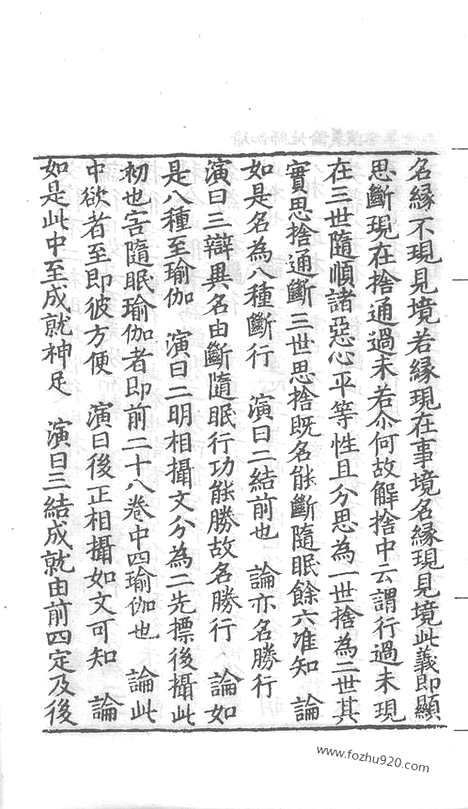 名縁不現見境若縁現在事境名縁現見境此義即顯
思斷現在捨通過未若尒何故解捨中云謂行過未現
在三世隨順諸惡心平等性且分思為一世捨為二世其
實思捨通斷三世思捨既名能斷隨眠餘六准知 論
如是名為八種斷行 演曰二結前也 論亦名勝行
演曰三辯異名由斷隨眠行功能勝故名勝行 論如
是八種至瑜伽 演曰二明相攝文分為二先標後攝此
初也害隨眠瑜伽者即前二十八卷中四瑜伽也 論此
中欲者至即彼方便 演曰後正相攝如文可知 論
如是此中至成就神足 演曰三結成就由前四定及後
www.fozhu920.com